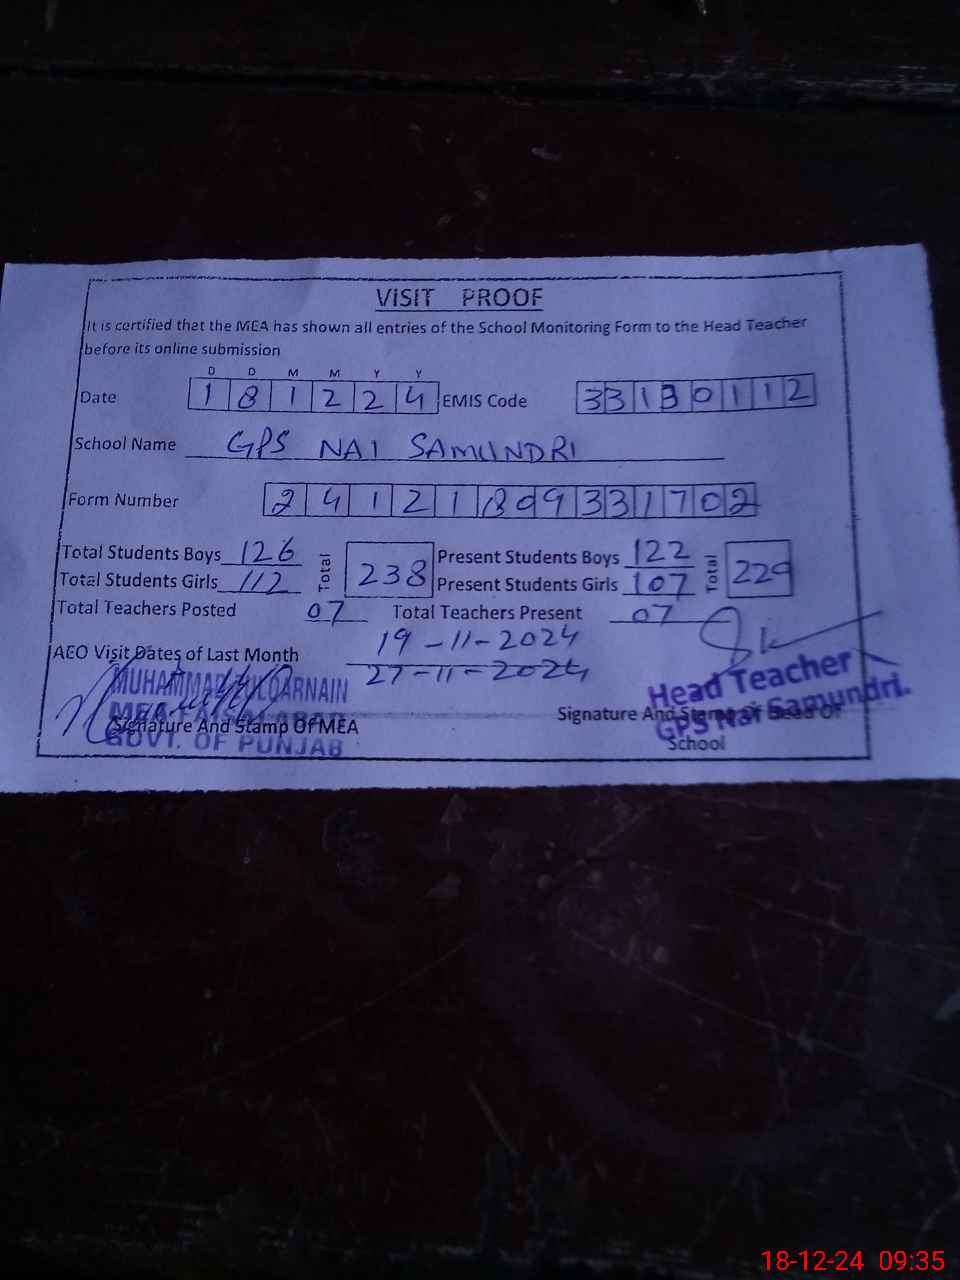 VISIT PROOF
It is certified that the MEA has shown all entries of the School Monitoring Form to the Head Teacher
before its online submission
D D M M Y Y
Date 1 8 1 2 2 4 EMIS Code 3 3 1 3 0 1 1 2
School Name GPS NAI SAMUNDRI
Form Number 2 4 1 2 1 8 0 9 3 3 1 7 0 2
Total Students Boys 126 Total 238 Present Students Boys 122 Total 229
Total Students Girls 112 Present Students Girls 107
Total Teachers Posted 07 Total Teachers Present 07
AEO Visit Dates of Last Month 19-11-2024
27-11-2024
MUHAMMAD ZULQARNAIN
MEA FAISALABAD
GOVT. OF PUNJAB
Signature And Stamp Of MEA
Head Teacher
GPS Nai Samundri.
Signature And Stamp of Head Of
School
18-12-24 09:35